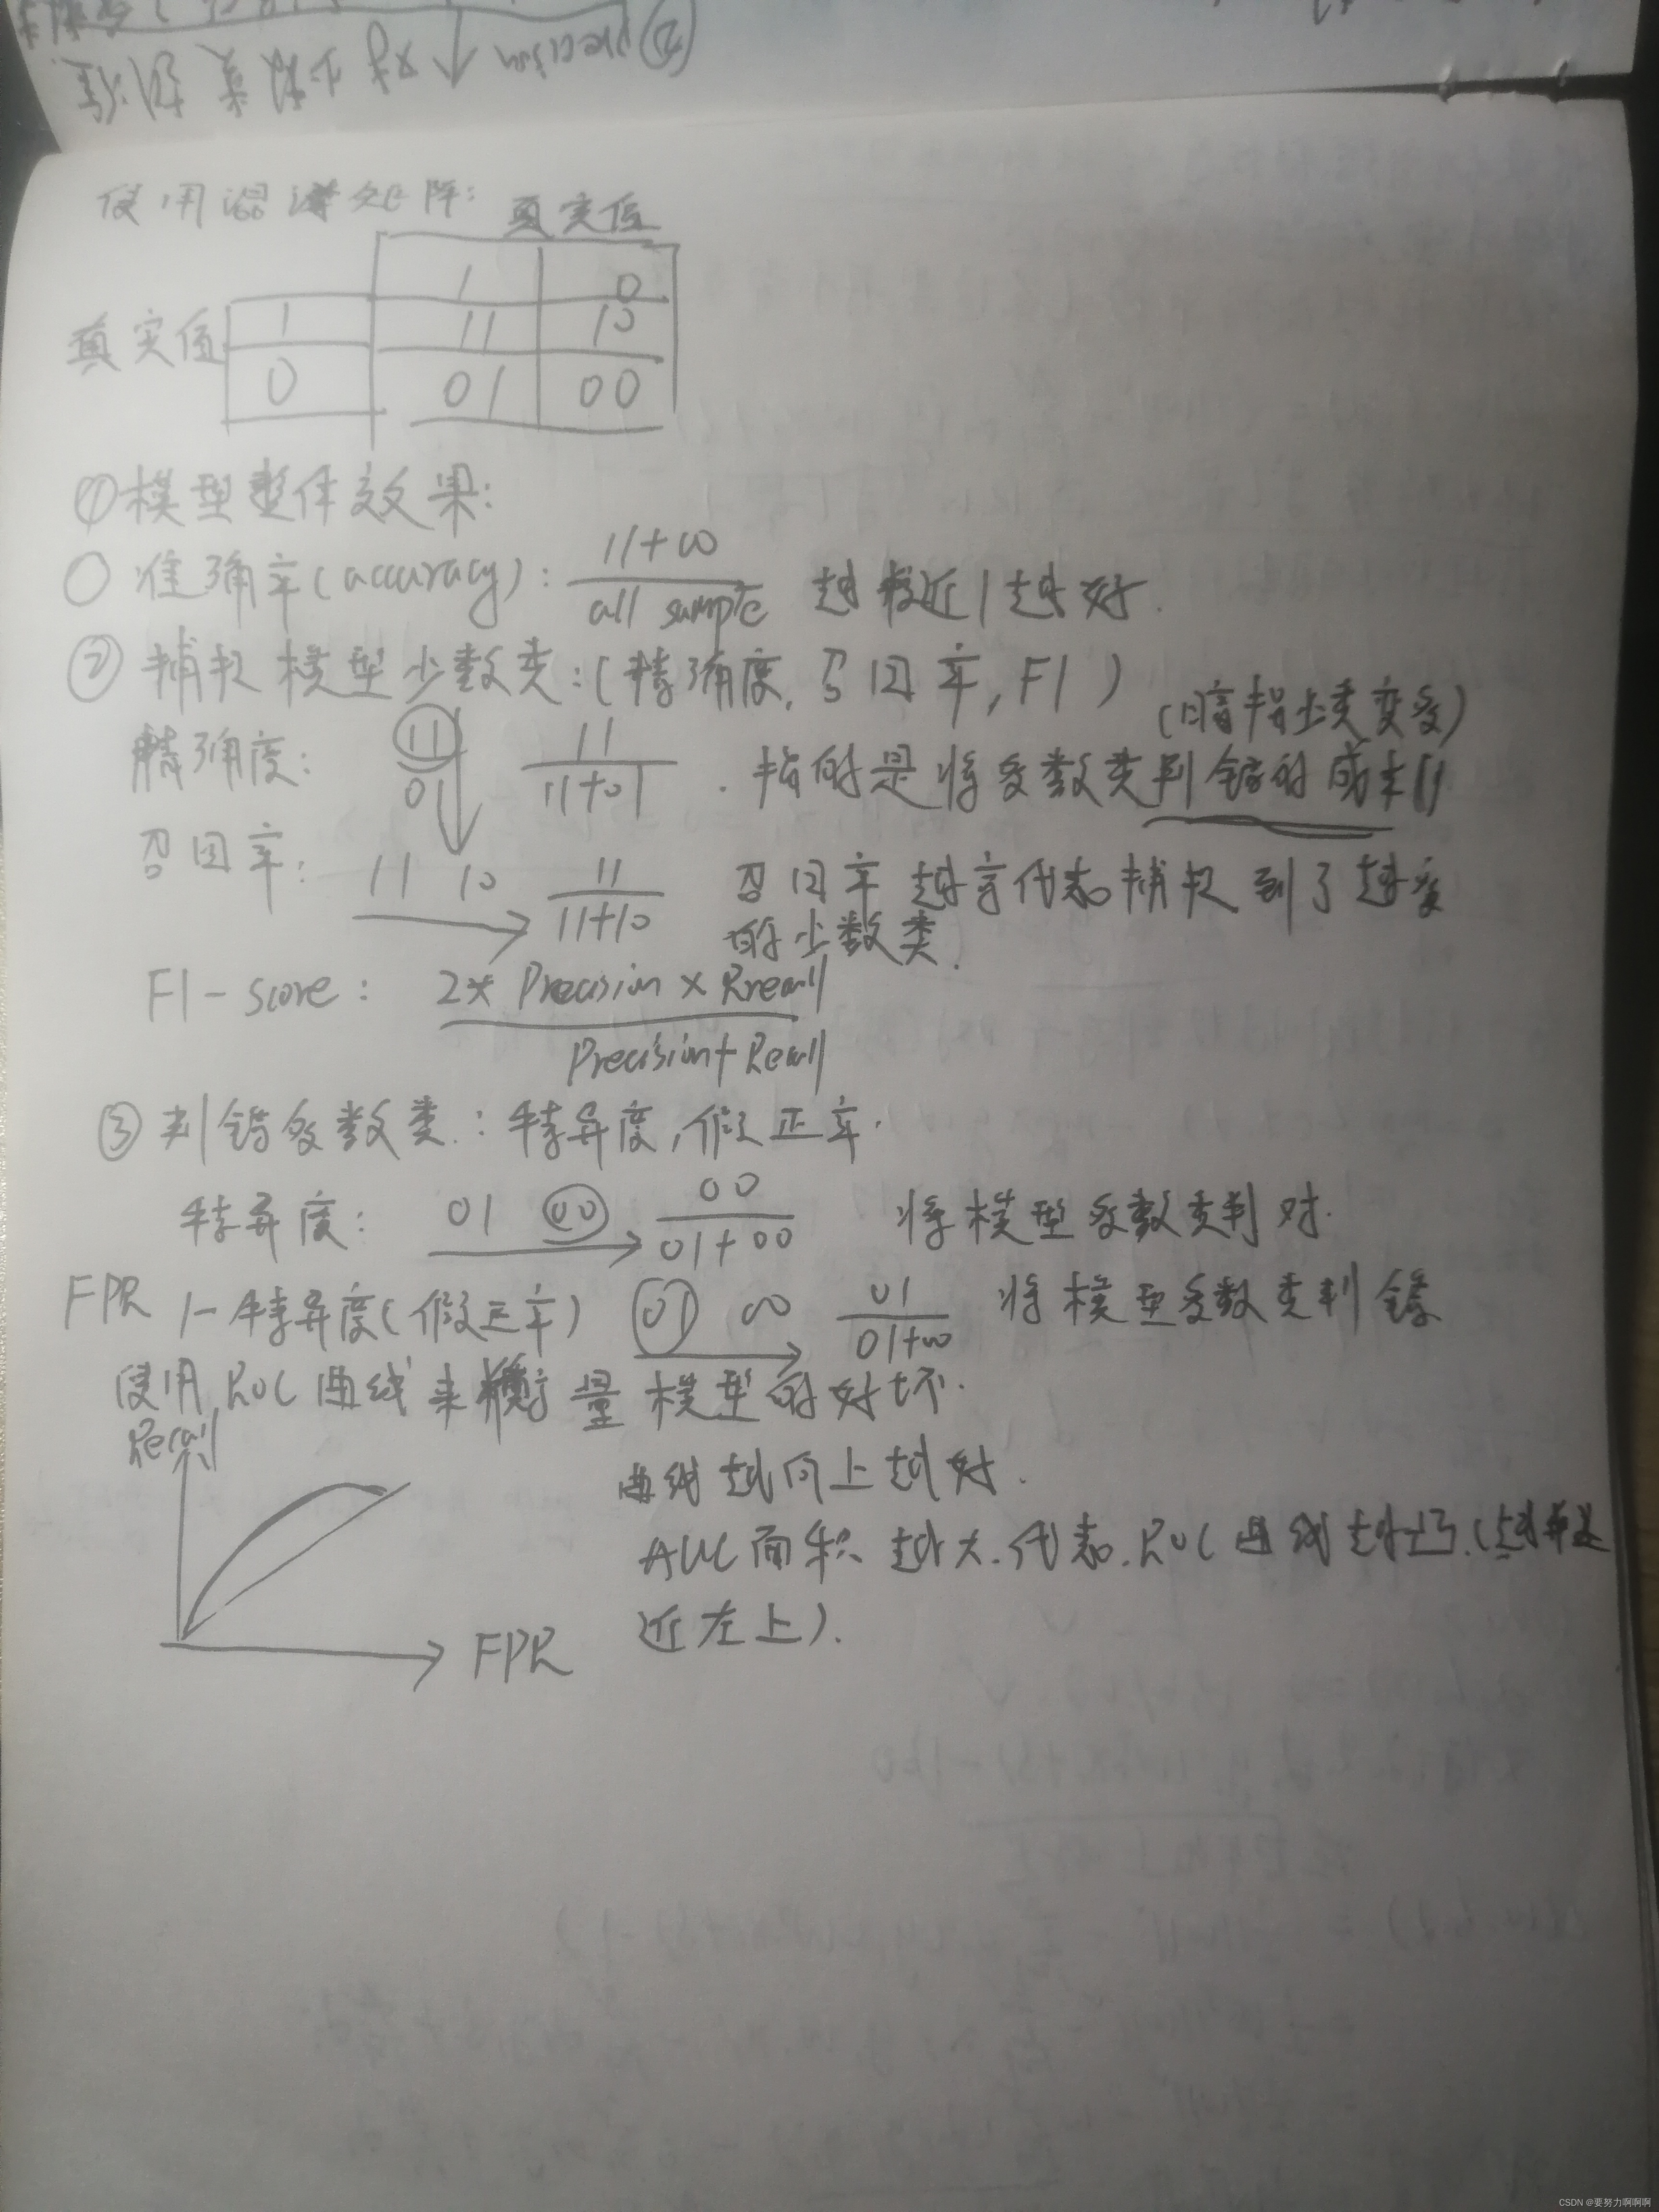 ②precision 对少数类 精准
使用混淆矩阵:
真实值
1 0
真实值 1 11 10
0 01 00
①模型整体效果:
○ 准确率(accuracy): 11+00 / all sample 越接近1越好.
②捕捉模型少数类:(精确度, 召回率, F1)
(暗指少类变多)
精确度: 11 01 11 / 11+01 . 指的是将多数类判错的成本
召回率: 11 10 11 / 11+10 召回率越高代表捕捉到了越多
的少数类.
F1-score: 2* Precision × Rrecall / Precision+Recall
③判错多数类: 特异度,假正率.
特异度: 01 00 00 / 01+00 将模型多数类判对.
FPR 1-特异度(假正率) 01 00 01 / 01+00 将模型多数类判错
使用ROC曲线来衡量模型的好坏.
Recall
曲线越向上越好.
AUC面积越大.代表.ROC曲线越凸.(越接近
近左上).
FPR
CSDN @要努力啊啊啊